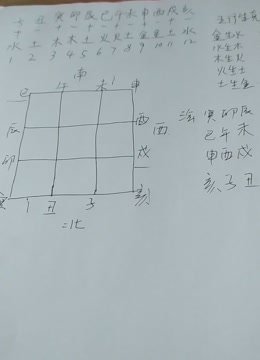 子 丑 寅 卯 辰 巳 午 未 申 酉 戌 亥
+ - + - + - + - + - + -
水 土 木 木 土 火 火 土 金 金 土 水
1 2 3 4 5 6 7 8 9 10 11 12
五行生克
金生水
水生木
木生火
火生土
土生金
南
巳 午 未 申
辰 酉 西
卯 戌
寅 丑 子 亥
北
寅卯辰
巳午未
申酉戌
亥子丑